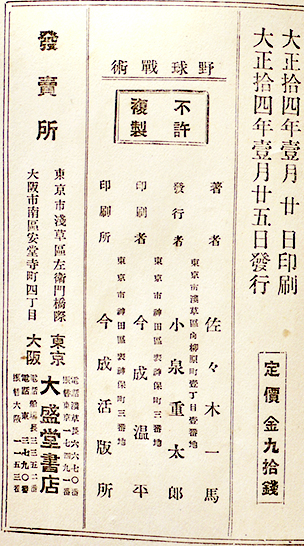 大正拾四年壹月廿日印刷
大正拾四年壹月廿五日發行
定價金九拾錢
野球戰術
不許複製
著者 佐々木一馬
東京市淺草區向柳原町壹丁目壹番地
發行者 小泉重太郎
東京市神田區表神保町三番地
印刷者 今成溫平
東京市神田區表神保町三番地
印刷所 今成活版所
發賣所
東京市淺草區左衞門橋際
大阪市南區安堂寺町四丁目
東京
大阪
大盛堂書店
電話淺草長六六七〇番
振替東京一七四九一番
電話船場長三三五二番
電話東三七九〇番
振替大阪一一五三番